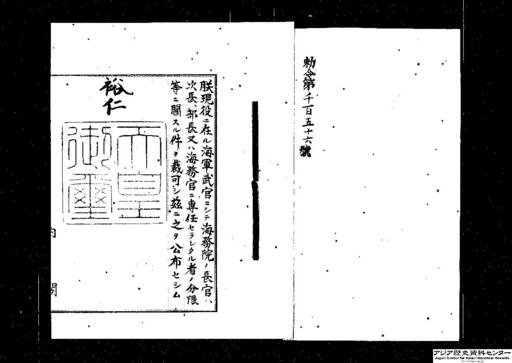 勅令第千百五十六號
朕現役ニ在ル海軍武官ニシテ海務院ノ長官、
次長、部長又ハ海務官ニ専任セラレタル者ノ分限
等ニ關スル件ヲ裁可シ茲ニ之ヲ公布セシム
裕仁
天皇御璽
内 閣
アジア歴史資料センター
Japan Center for Asian Historical Records